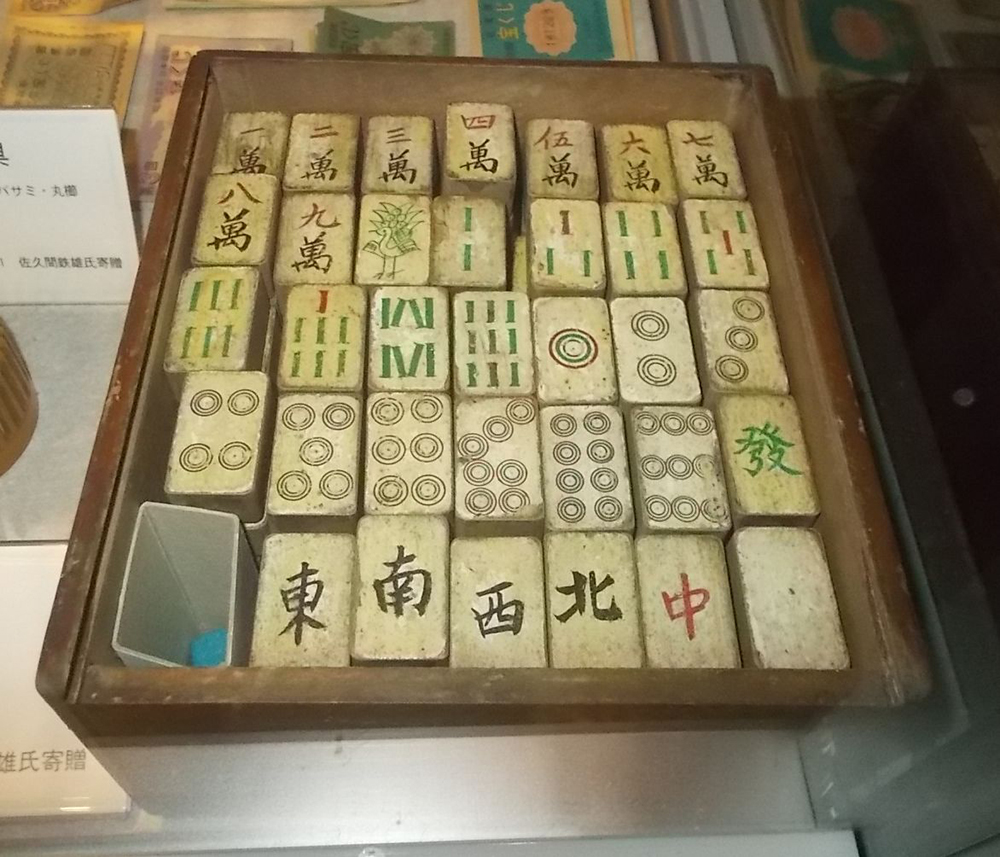 宝くじ
バサミ・丸櫛
佐久間鉄雄氏寄贈
一萬
二萬
三萬
四萬
伍萬
六萬
七萬
八萬
九萬
發
東
南
西
北
中
雄氏寄贈